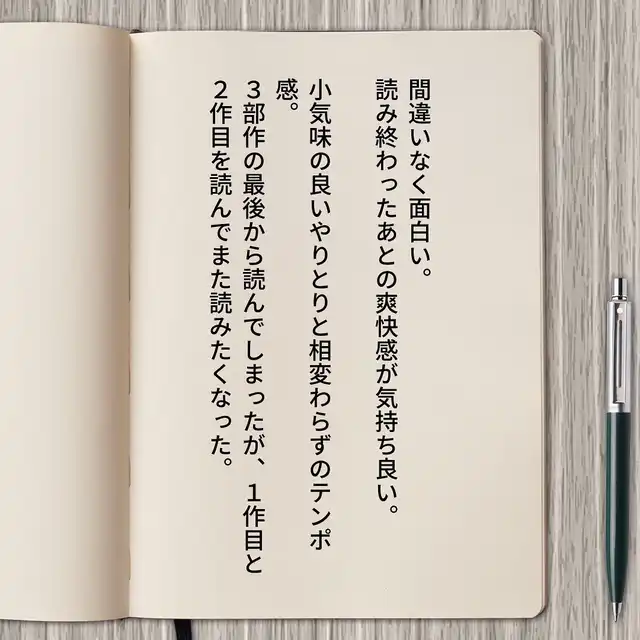 間違いなく面白い。
読み終わったあとの爽快感が気持ち良い。
小気味の良いやりとりと相変わらずのテンポ
感。
３部作の最後から読んでしまったが、１作目と
２作目を読んでまた読みたくなった。